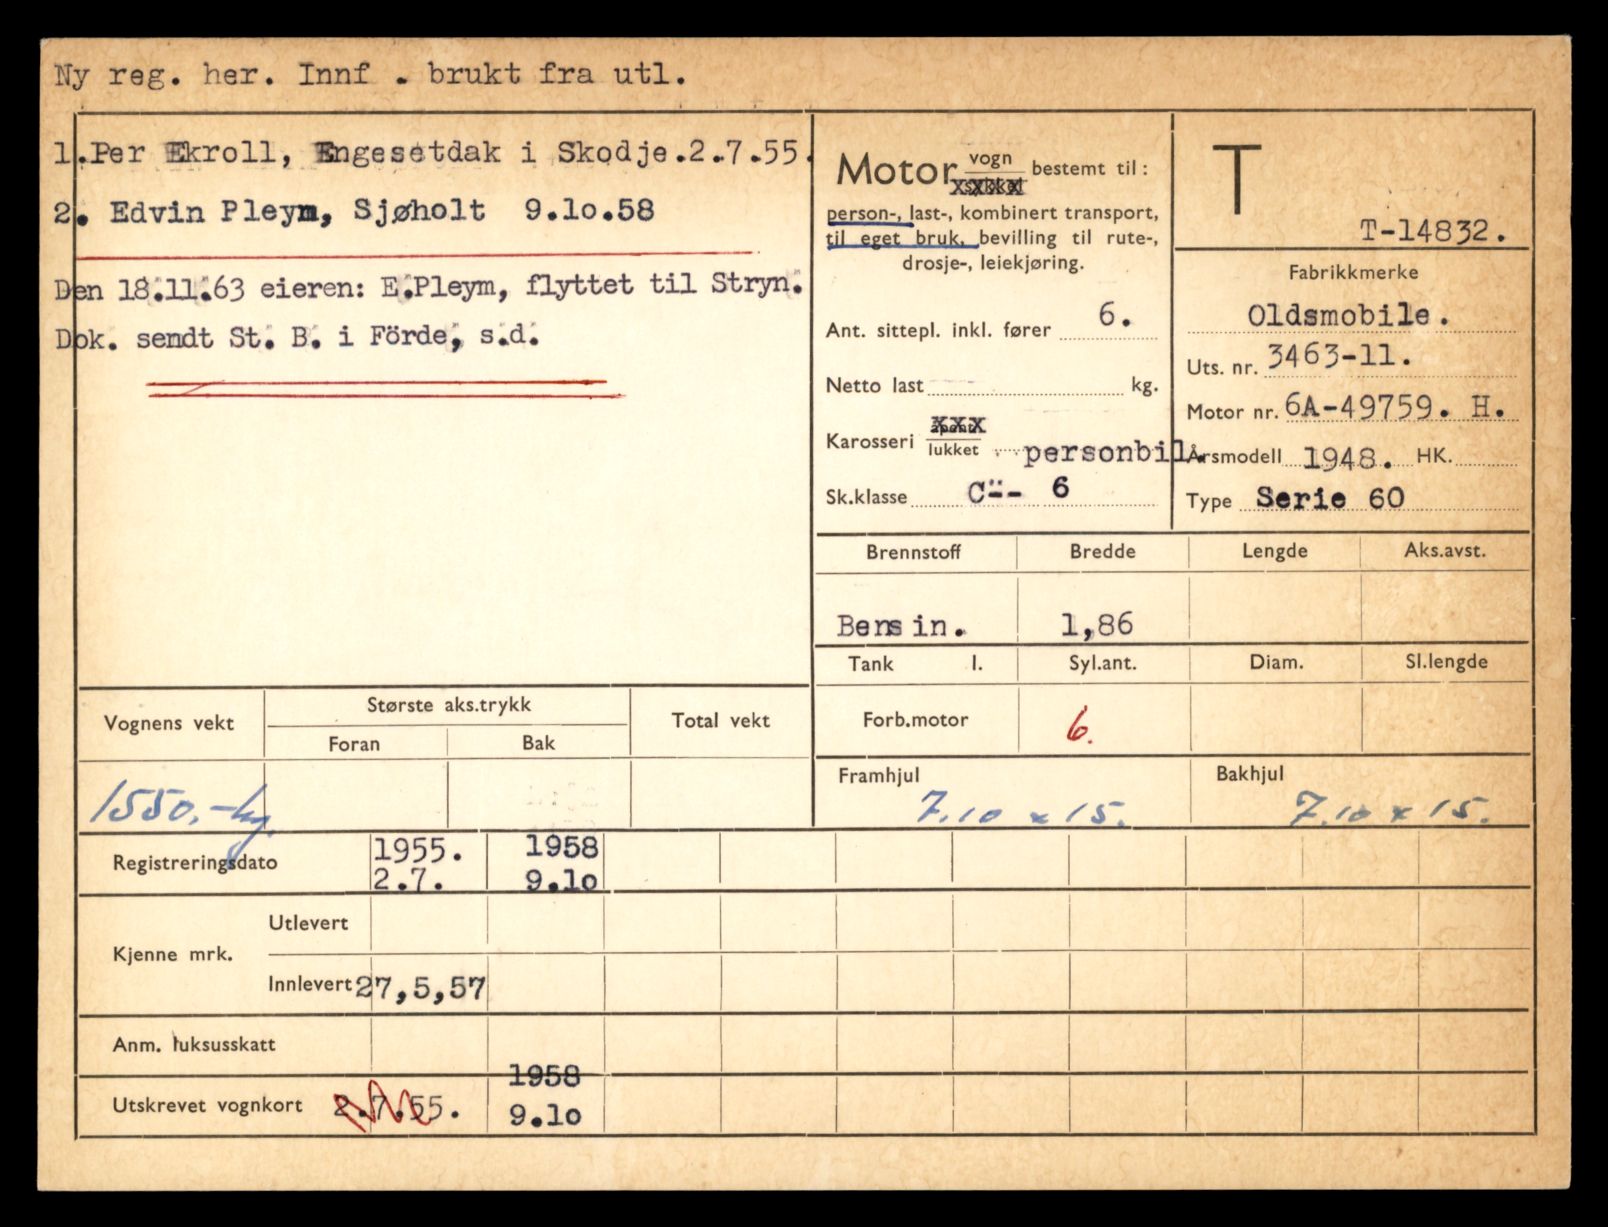 Ny reg. her. Innf . brukt fra utl.
1.Per Ekroll, Engesetdak i Skodje.2.7.55.
2. Edvin Pleym, Sjøholt 9.lo.58
Den 18.11.63 eieren: E.Pleym, flyttet til Stryn.
Dok. sendt St. B. i Förde, s.d.
Motor vogn bestemt til:
person-, last-, kombinert transport,
til eget bruk, bevilling til rute-,
drosje-, leiekjøring.
Ant. sittepl. inkl. fører 6.
Netto last kg.
Karosseri åpent xxx
lukket personbil.
Sk.klasse C-- 6
T
T-14832.
Fabrikkmerke
Oldsmobile.
Uts. nr. 3463-11.
Motor nr. 6A-49759. H.
Årsmodell 1948. HK.
Type Serie 60
Brennstoff Bredde Lengde Aks.avst.
Bensin. 1,86
Tank l. Syl.ant. Diam. Sl.lengde
Forb.motor 6.
Framhjul Bakhjul
7.10 x 15. 7.10 x 15.
Vognens vekt Største aks.trykk Total vekt
Foran Bak
1550.-kg.
Registreringsdato 1955. 1958
2.7. 9.lo
Kjenne mrk. Utlevert
Innlevert 27,5,57
Anm. luksusskatt
1958
Utskrevet vognkort 2.7.55. 9.lo